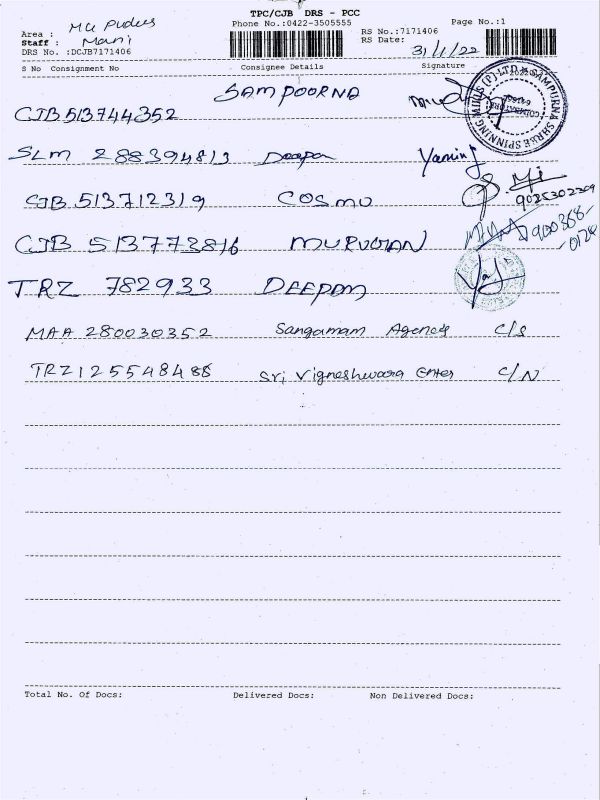 TPC/CJB DRS - PCC
Area : MG Pudur
Phone No.:0422-3505555
Page No.:1
Staff : Mani
RS No.:7171406
DRS No. :DCJB7171406
RS Date: 31/1/22
S No Consignment No Consignee Details Signature
CJB 513744352 SAMPOORNA
SAMPURNA SHREE SPINNING MILLS (P) LTD
COIMBATORE
SLM 288394813 Deepa Yamini
CJB 513712319 COSMO
9026302309
CJB 513773816 MURUGAN 900368-
0124
TRZ 782933 DEEPAM
MAA 280030352 Sangamam Agency C/S
TRZ 125548488 Sri Vigneshwara Enter C/N
Total No. Of Docs: Delivered Docs: Non Delivered Docs: